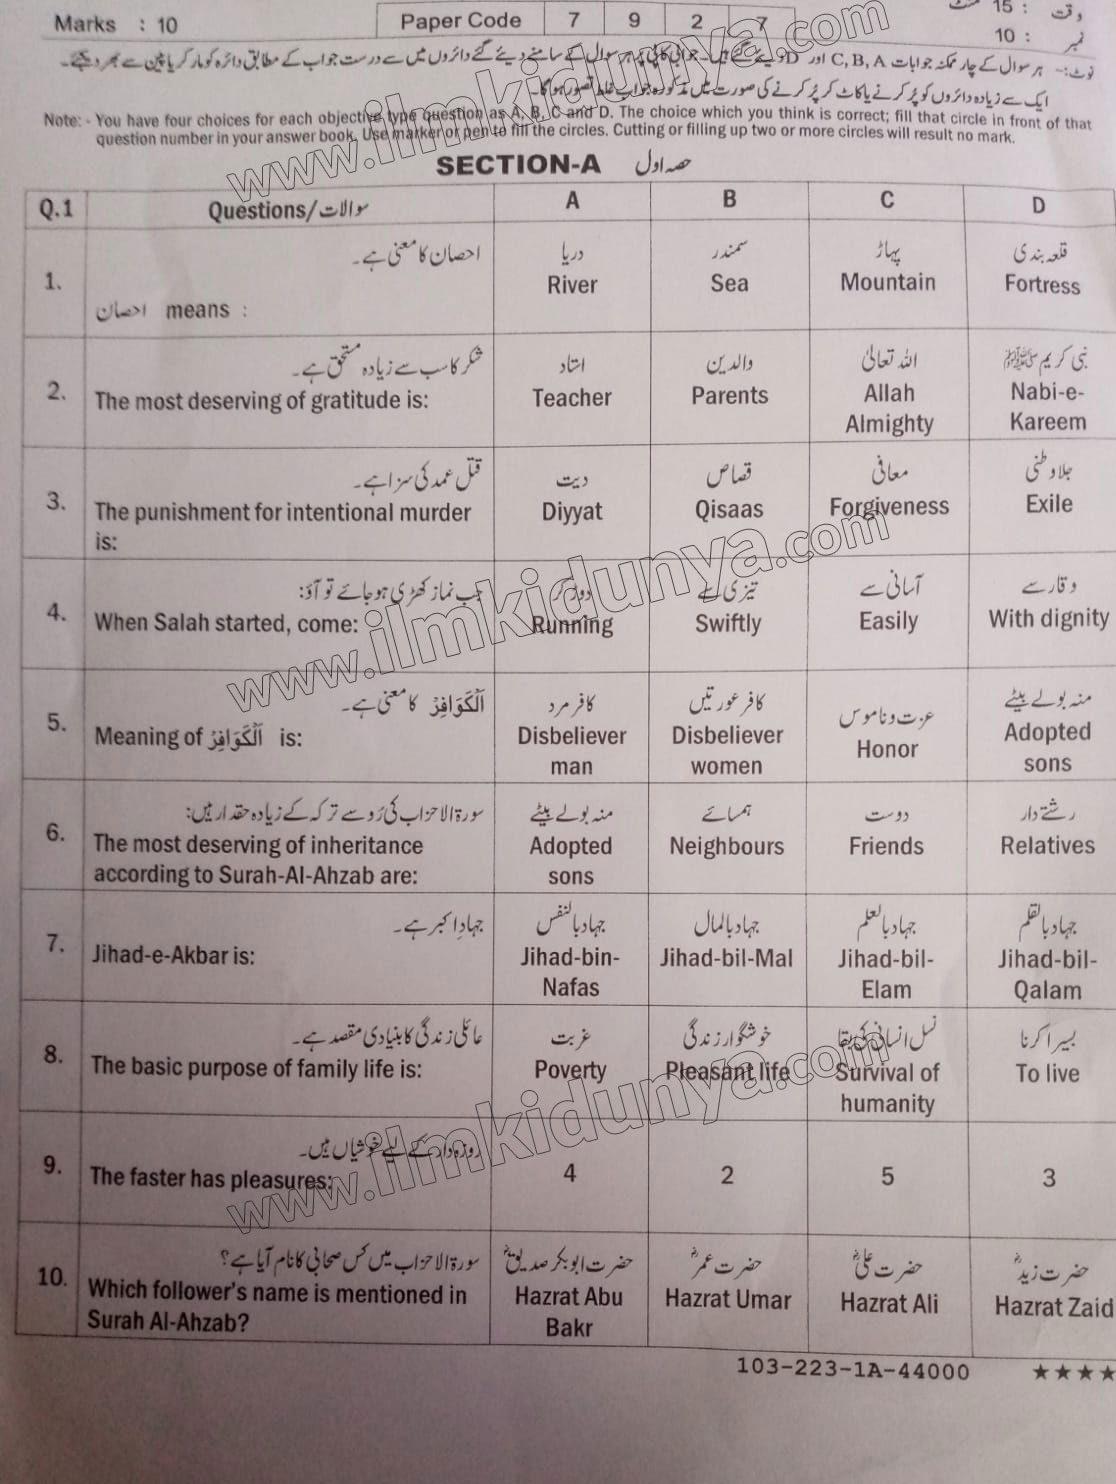 Marks : 10
Paper Code 7 9 2 7
وقت : 15 منٹ
نمبر : 10
نوٹ:- ہر سوال کے چار ممکنہ جوابات C, B, A اور D دیئے گئے ہیں۔ جوابی کاپی پر ہر سوال کے سامنے دیئے گئے دائروں میں سے درست جواب کے مطابق دائرہ کو مارکر یا پین سے بھر دیجئے۔
ایک سے زیادہ دائروں کو پُر کرنے یا کاٹ کر پُر کرنے کی صورت میں مذکورہ جواب غلط تصور ہوگا۔
Note: - You have four choices for each objective type question as A, B, C and D. The choice which you think is correct; fill that circle in front of that
question number in your answer book. Use marker or pen to fill the circles. Cutting or filling up two or more circles will result no mark.
SECTION-A حصہ اول
Q.1 Questions/سوالات A B C D
1. احصان کا معنی ہے۔
احصان means :
دریا
River
سمندر
Sea
پہاڑ
Mountain
قلعہ بندی
Fortress
2. شکر کا سب سے زیادہ مستحق ہے۔
The most deserving of gratitude is:
استاد
Teacher
والدین
Parents
اللہ تعالیٰ
Allah
Almighty
نبی کریم ﷺ
Nabi-e-
Kareem
3. قتل عمد کی سزا ہے۔
The punishment for intentional murder
is:
دیت
Diyyat
قصاص
Qisaas
معافی
Forgiveness
جلاوطنی
Exile
4. جب نماز کھڑی ہو جائے تو آؤ:
When Salah started, come:
دوڑ کر
Running
تیزی سے
Swiftly
آسانی سے
Easily
وقار سے
With dignity
5. اَلْكَوَافِرْ کا معنی ہے۔
Meaning of اَلْكَوَافِرْ is:
کافر مرد
Disbeliever
man
کافر عورتیں
Disbeliever
women
عزت و ناموس
Honor
منہ بولے بیٹے
Adopted
sons
6. سورۃ الاحزاب کی رُو سے ترکہ کے زیادہ حقدار ہیں:
The most deserving of inheritance
according to Surah-Al-Ahzab are:
منہ بولے بیٹے
Adopted
sons
ہمسائے
Neighbours
دوست
Friends
رشتے دار
Relatives
7. جہادِ اکبر ہے۔
Jihad-e-Akbar is:
جہاد بالنفس
Jihad-bin-
Nafas
جہاد بالمال
Jihad-bil-Mal
جہاد بالعلم
Jihad-bil-
Elam
جہاد بالقلم
Jihad-bil-
Qalam
8. عائلی زندگی کا بنیادی مقصد ہے۔
The basic purpose of family life is:
غربت
Poverty
خوشگوار زندگی
Pleasant life
نسل انسانی کی بقا
Survival of
humanity
بسیرا کرنا
To live
9. روزہ دار کے لیے خوشیاں ہیں۔
The faster has pleasures:
4
2
5
3
10. سورۃ الاحزاب میں کس صحابی کا نام آیا ہے؟
Which follower's name is mentioned in
Surah Al-Ahzab?
حضرت ابوبکر صدیقؓ
Hazrat Abu
Bakr
حضرت عمرؓ
Hazrat Umar
حضرت علیؓ
Hazrat Ali
حضرت زیدؓ
Hazrat Zaid
103-223-1A-44000 ★★★★
www.ilmkidunya.com
www.ilmkidunya.com
www.ilmkidunya.com